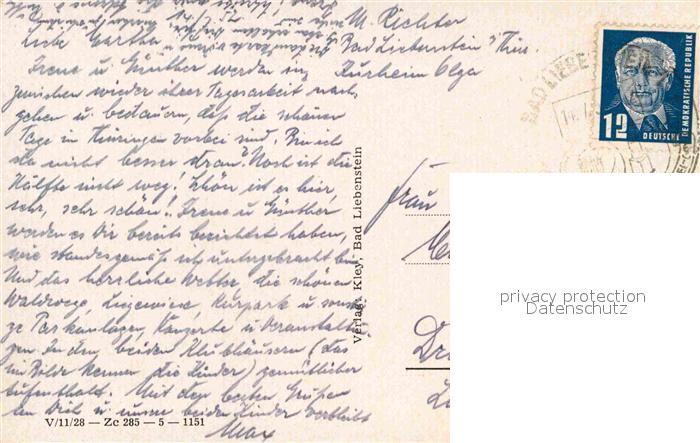 M. Richter
Bad Liebenstein Thür.
Kurheim Olga
Liebe Martha
Irene u. Günther werden in
zwischen wieder ihrer Tagesarbeit nach
gehen u. bedauern, daß die schönen
Tage in Thüringen vorbei sind. Bin ich
da nicht besser dran? Noch ist die
Hälfte nicht weg! Schön ist es hier,
sehr, sehr schön! Irene u. Günther
werden es Dir bereits berichtet haben,
wie standesgemäß ich untergebracht bin
Und das herrliche Wetter, die schönen
Waldwege Liegewiese, Kurpark u. sonsti
ge Parkanlagen, Konzerte u. Veranstaltun
gen. In den beiden Klubhäusern (das
im Bilde kennen die Kinder) gemütlicher
Aufenthalt. Mit den besten Grüßen
an Dich u. unsere beiden Kinder verbleibt
Max
V/11/28 — Zc 285 — 5 — 1151
Verlag: Kley, Bad Liebenstein
BAD LIEBE
12
DEUTSCHE
DEMOKRATISCHE REPUBLIK
Frau
privacy protection
Datenschutz